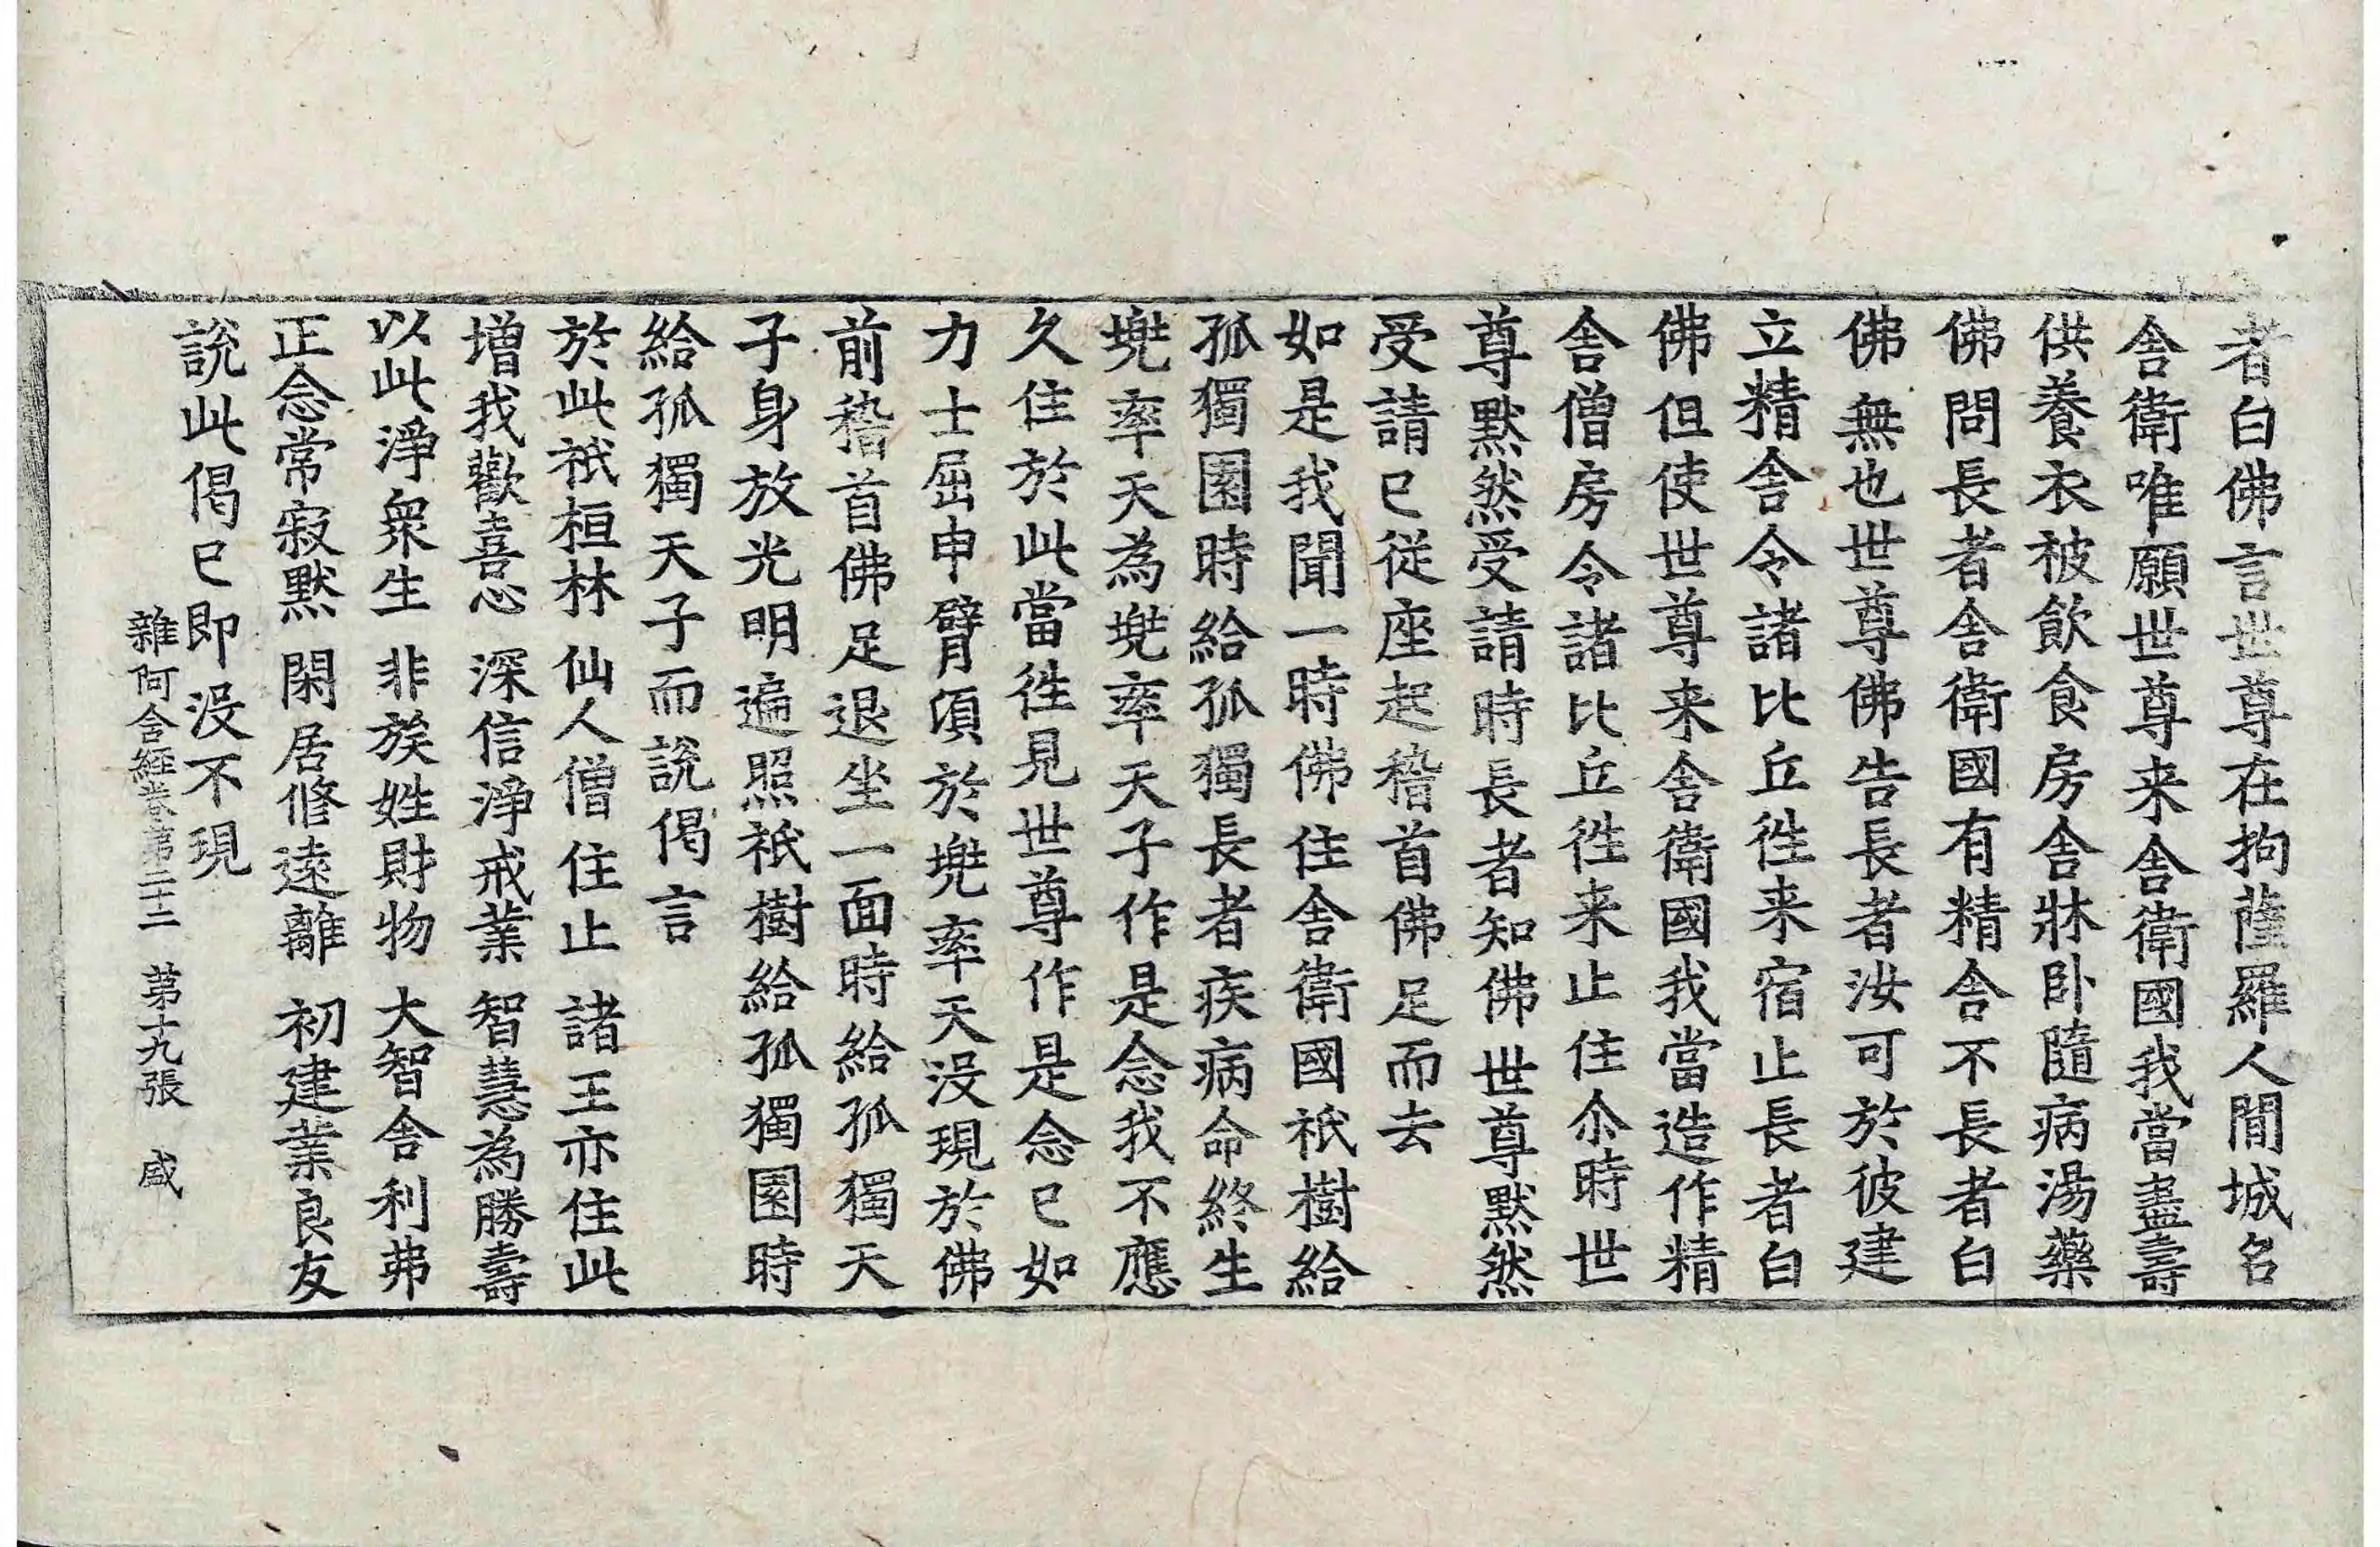 者白佛言世尊在拘薩羅人閒城名
舍衛唯願世尊来舍衛國我當盡壽
供養衣被飲食房舍牀卧隨病湯藥
佛問長者舍衛國有精舍不長者白
佛無也世尊佛告長者汝可於彼建
立精舍令諸比丘徃来宿止長者白
佛但使世尊来舍衛國我當造作精
舍僧房令諸比丘徃来止住尒時世
尊默然受請時長者知佛世尊默然
受請已從座起稽首佛足而去
如是我聞一時佛住舍衛國祇樹給
孤獨園時給孤獨長者疾病命終生
兠率天為兠率天子作是念我不應
久住於此當徃見世尊作是念已如
力士屈申臂頃於兠率天没現於佛
前稽首佛足退坐一面時給孤獨天
子身放光明遍照祇樹給孤獨園時
給孤獨天子而說偈言
於此祇桓林 仙人僧住止 諸王亦住此
增我歡喜心 深信淨戒業 智慧為勝壽
以此淨衆生 非族姓財物 大智舍利弗
正念常寂默 閑居修遠離 初建業良友
說此偈已即没不現
雜阿含經卷第二十二 第十九張 咸